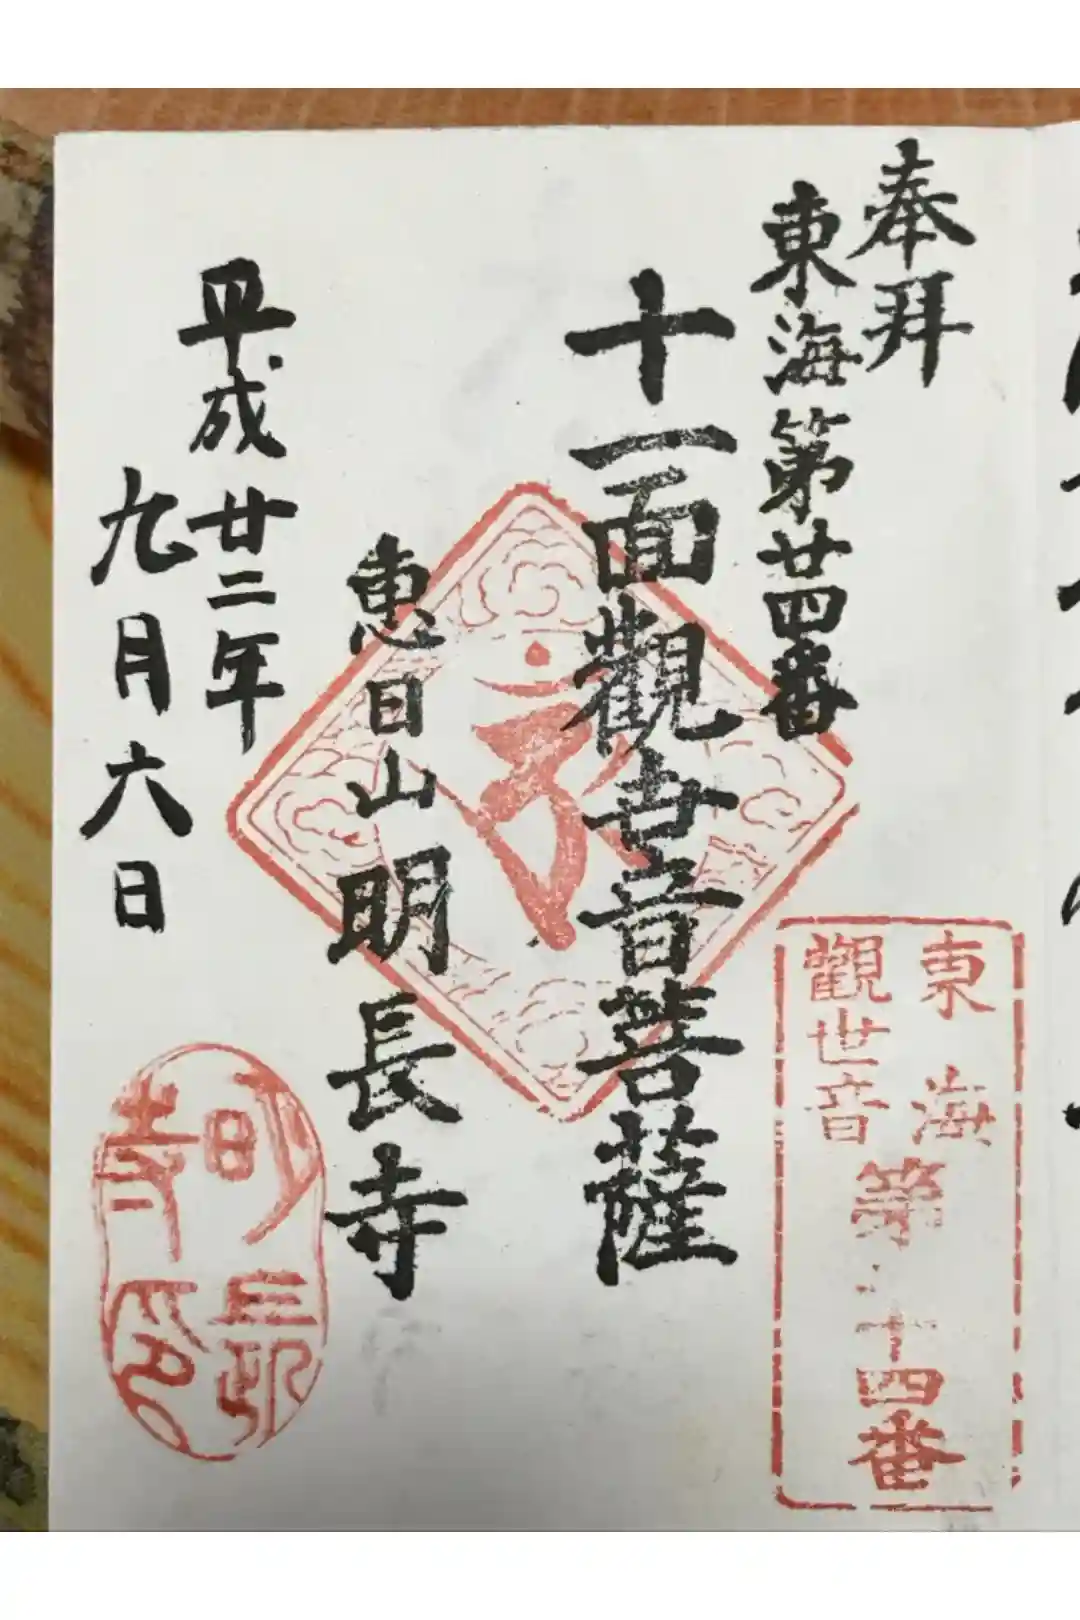 奉拜
東海第廿四番
十一面觀世音菩薩
恵日山明長寺
平成廿二年
九月六日
東海
觀世音
第二十四番
明長
寺印